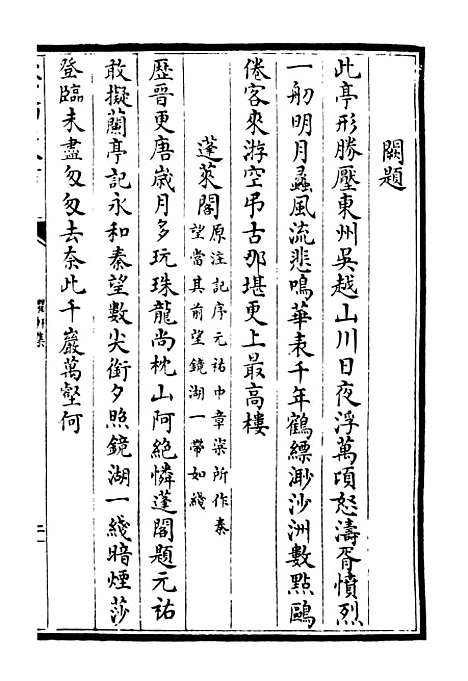 闕題
此亭形勝壓東州吳越山川日夜浮萬頃怒濤胥憤烈
一舠明月蠡風流悲鳴華表千年鶴縹渺沙洲數點鷗
倦客來游空弔古那堪更上最高樓
蓬萊閣
原注記序元祐中章楶所作秦
望當其前望鏡湖一帶如綫
歷晉更唐歲月多玩珠龍尚枕山阿絶憐蓬閣題元祐
敢擬蘭亭記永和秦望數尖銜夕照鏡湖一綫暗煙莎
登臨未盡匆匆去奈此千巖萬壑何